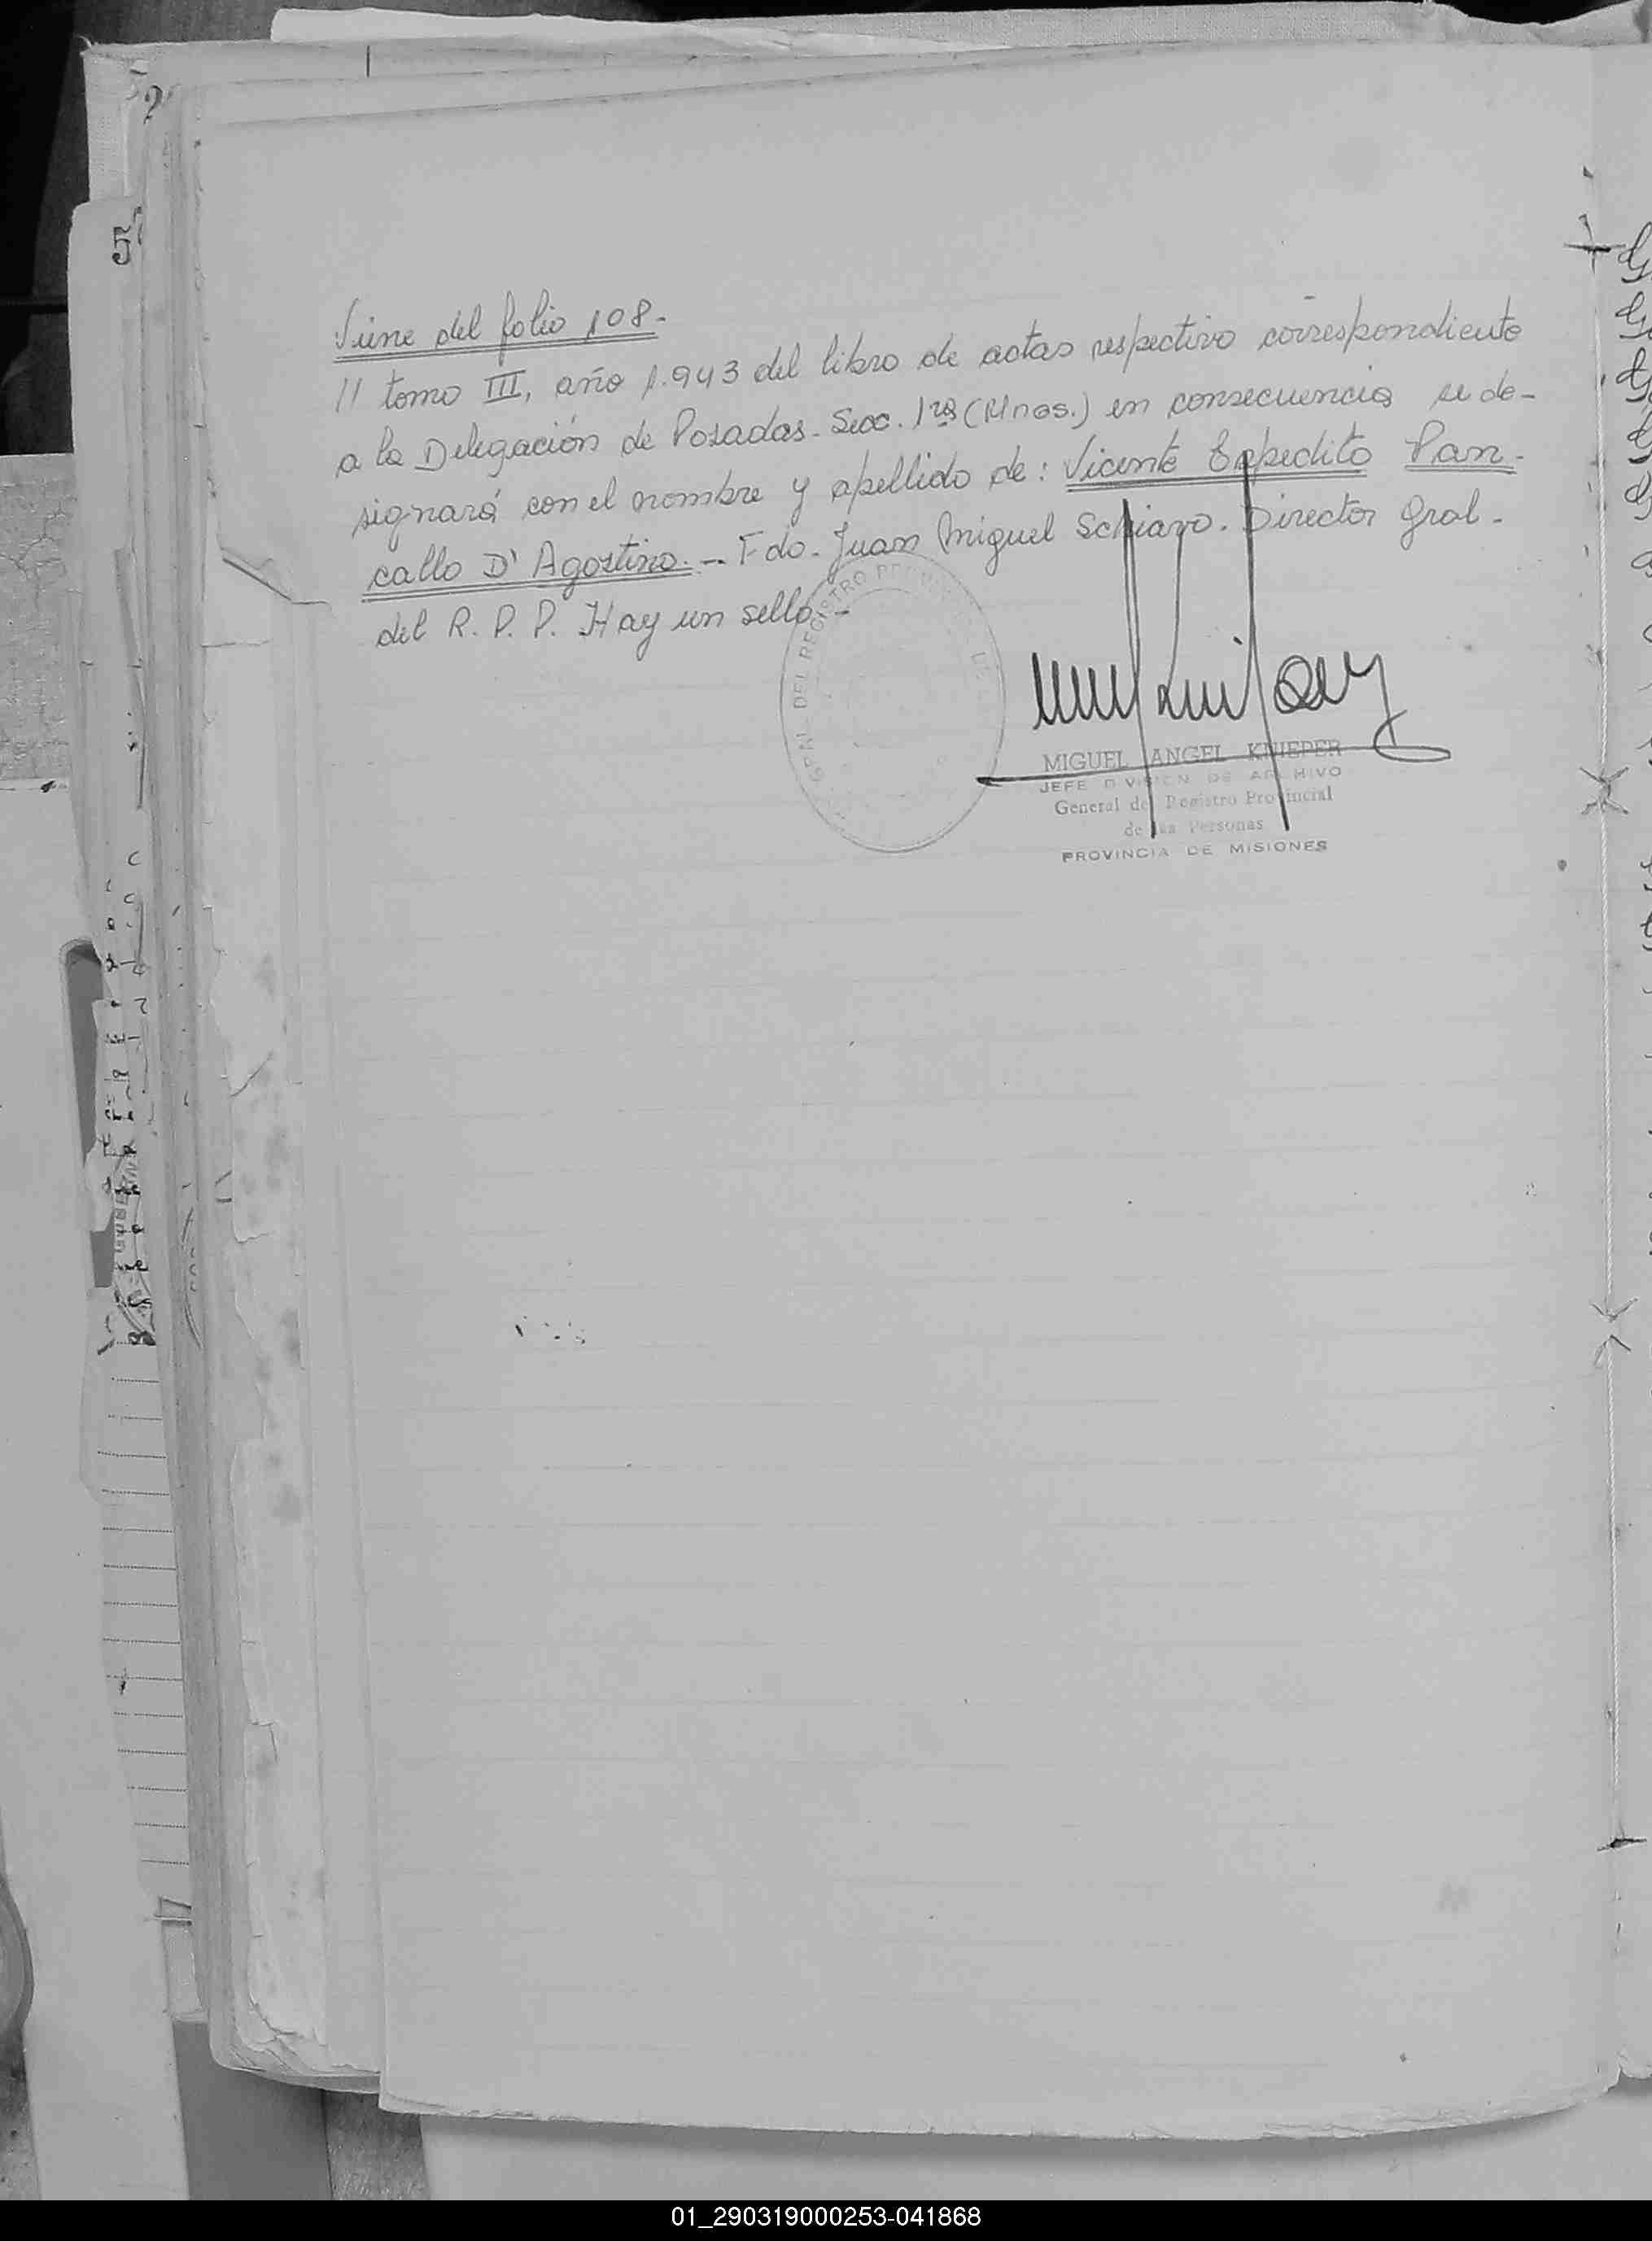 2
5
Viene del folio 108.-
11 tomo III, año 1.943 del libro de actas respectivo correspondiente
a la Delegación de Posadas - Secc. 1ra (Mnes.) en consecuencia se de-
signará con el nombre y apellido de: Vicente Expedito Pan-
callo D'Agostino. - Fdo. Juan Miguel Schiavo. Director Gral.
del R. P. P. Hay un sello. -
GRAL. DEL REGISTRO
MIGUEL ANGEL KNIEPER
JEFE DIVISION DE ARCHIVO
General del Registro Provincial
de las Personas
PROVINCIA DE MISIONES
01_290319000253-041868